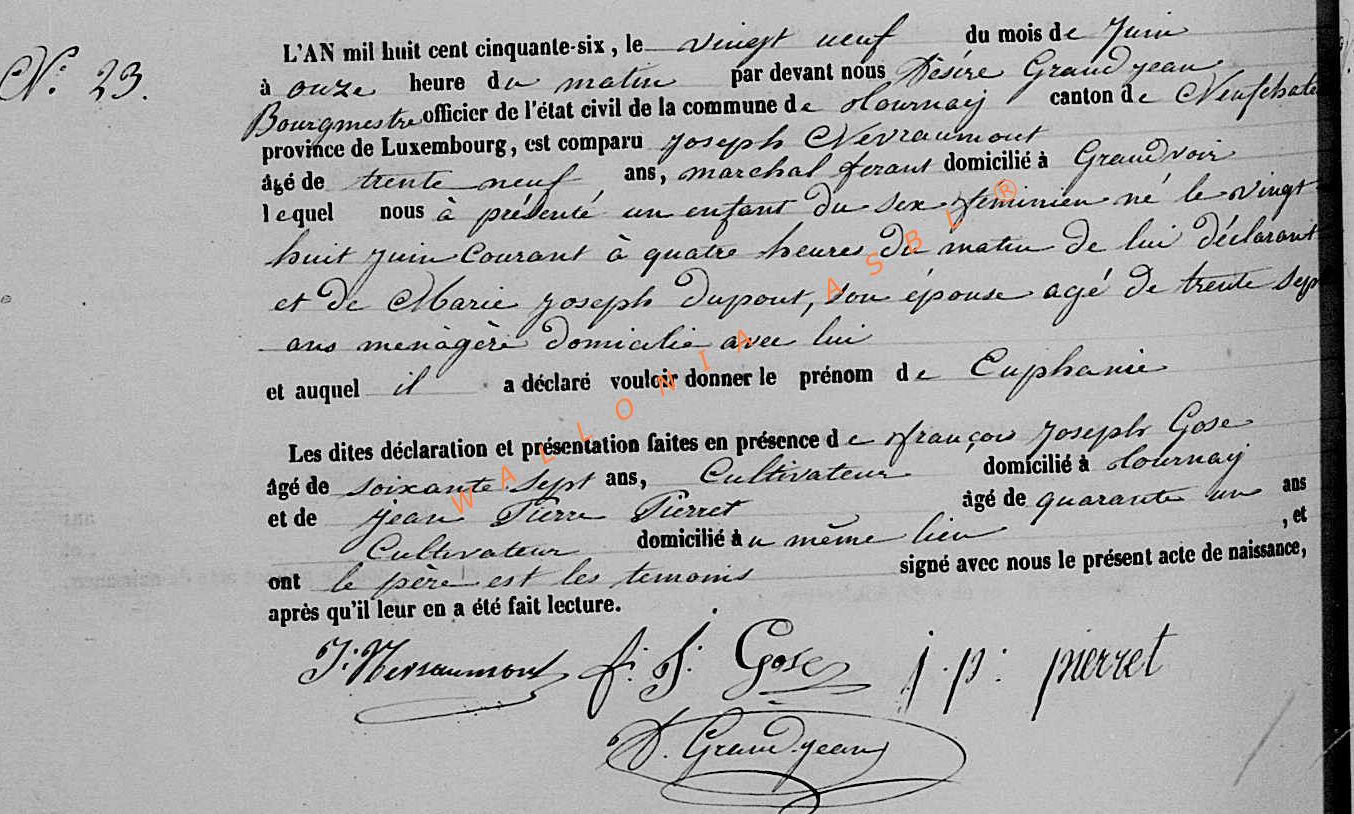 N.° 23.
L'AN mil huit cent cinquante-six, le vingt neuf du mois de Juin
à onze heure du matin par devant nous Désiré Grandjean
Bourgmestre officier de l'état civil de la commune de Tournay canton de Neufchate
province de Luxembourg, est comparu Joseph Nevraumont
âgé de trente neuf ans, marchal ferant domicilié à Grandvoir
lequel nous à présenté un enfant du sex feminien né le vingt
huit Juin Courant à quatre heures du matin de lui déclarant
et de Marie Joseph Dupont, son épouse agé de trente sep
ans menagère domicilié avec lui
et auquel il a déclaré vouloir donner le prénom de Euphanie
Les dites déclaration et présentation faites en présence de françois Joseph Gose
âgé de soixante sept ans, Cultivateur domicilié à Tournay
et de Jean Pierre Pierret âgé de quarante un ans
Cultivateur domicilié àu même lieu , et
ont le père est les temoins signé avec nous le présent acte de naissance,
après qu'il leur en a été fait lecture.
J: Nevraumont f: J: Gose j. p: pierret
D. Grandjean
WALLONIA ASBL ®